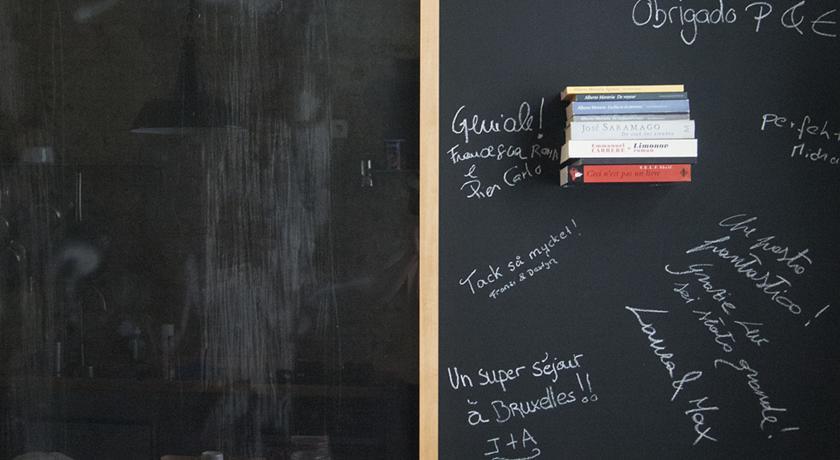 Obrigado P & E
Geniale!
Francesca Rosa
e
Pier Carlo
Alberto Moravia
Alberto Moravia De
Alberto Moravia
JOSÉ SARAMAGO
Emmanuel
CARRÈRE
Limonov
roman
Ceci n'est pas un livre
perfeh
Miche
Tack så mycket!
&
Che posto
fantastico!
Grazie
sei stato grande!
Laura & Max
Un super séjour
à Bruxelles!!
J+A